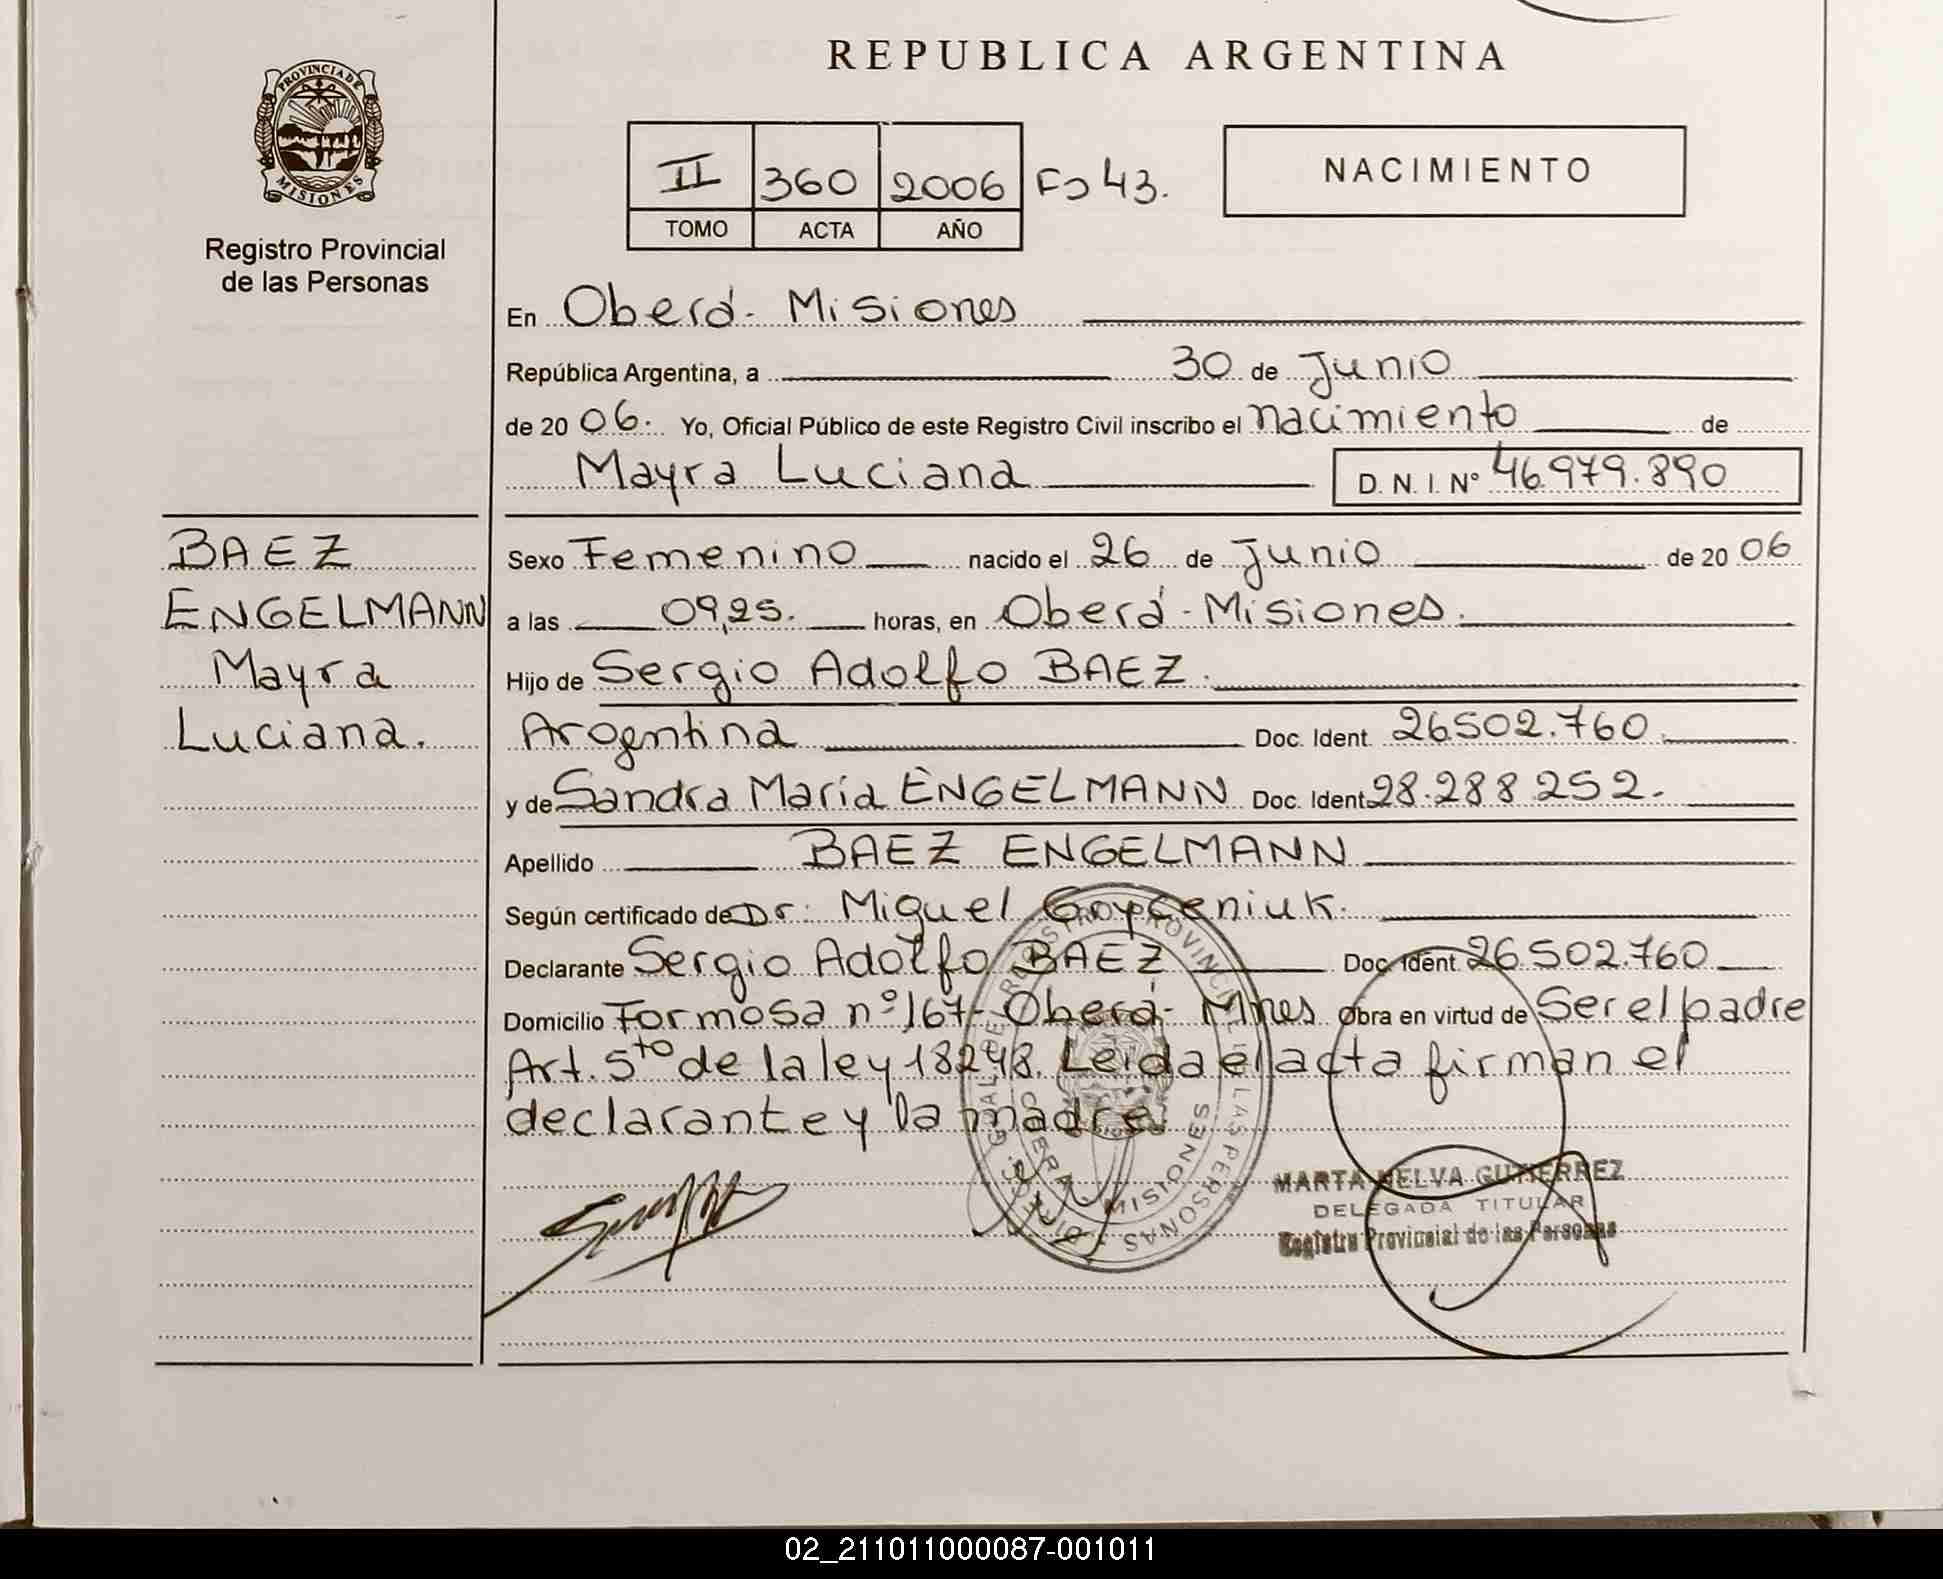 REPUBLICA ARGENTINA
PROVINCIA DE
MISIONES
Registro Provincial
de las Personas
II 360 2006 Fo 43.
TOMO ACTA AÑO
NACIMIENTO
En Oberá - Misiones
República Argentina, a 30 de Junio
de 20 06. Yo, Oficial Público de este Registro Civil inscribo el nacimiento de
Mayra Luciana D. N. I. Nº 46.979.890
BAEZ
ENGELMANN
Mayra
Luciana.
Sexo Femenino nacido el 26 de Junio de 20 06
a las 09,25. horas, en Oberá - Misiones.
Hijo de Sergio Adolfo BAEZ.
Argentina Doc. Ident. 26.502.760.
y de Sandra María ENGELMANN Doc. Ident. 28.288.252.
Apellido BAEZ ENGELMANN
Según certificado de Dr. Miguel
Declarante Sergio Adolfo BAEZ Doc. Ident. 26.502.760
Domicilio Formosa nº 167 - Oberá - Mnes Obra en virtud de Ser el padre
Art. 5to de la ley 18248. Leida el acta firman el
declarante y la madre
MARTA NELVA GUTIERREZ
DELEGADA TITULAR
Registro Provincial de las Personas
02_211011000087-001011